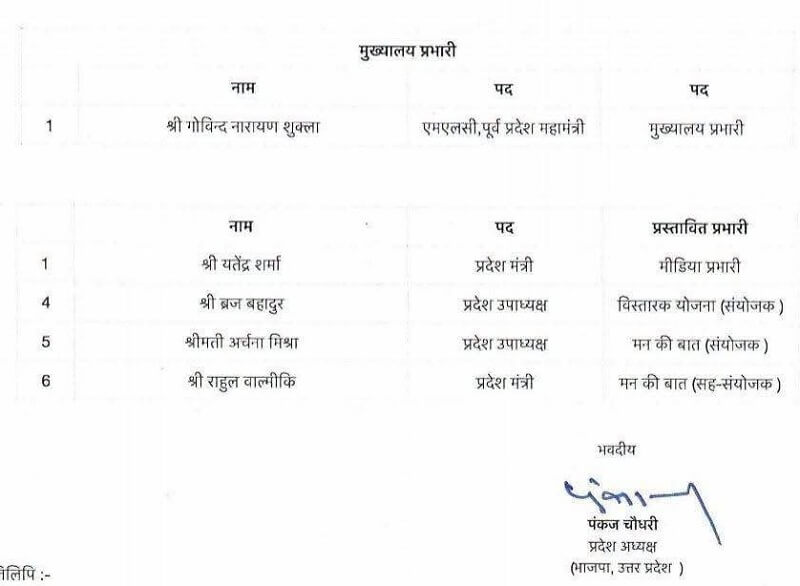 मुख्यालय प्रभारी
नाम पद पद
1 श्री गोविन्द नारायण शुक्ला एमएलसी,पूर्व प्रदेश महामंत्री मुख्यालय प्रभारी
नाम पद प्रस्तावित प्रभारी
1 श्री यतेंद्र शर्मा प्रदेश मंत्री मीडिया प्रभारी
4 श्री ब्रज बहादुर प्रदेश उपाध्यक्ष विस्तारक योजना (संयोजक )
5 श्रीमती अर्चना मिश्रा प्रदेश उपाध्यक्ष मन की बात (संयोजक )
6 श्री राहुल वाल्मीकि प्रदेश मंत्री मन की बात (सह-संयोजक )
भवदीय
पंकज चौधरी
प्रदेश अध्यक्ष
(भाजपा, उत्तर प्रदेश )